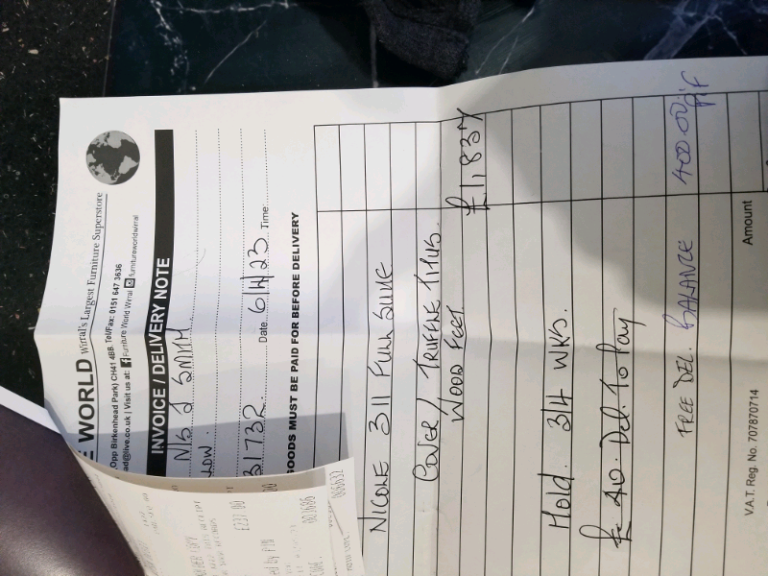 WORLD Wirral's Largest Furniture Superstore
Opp Birkenhead Park) CH41 4BB. Tel/Fax: 0151 647 3636
ad@live.co.uk | Visit us at: Furniture World Wirral furnitureworldwirral
INVOICE / DELIVERY NOTE
SMITH
31732. Date 6/4/23 Time:
GOODS MUST BE PAID FOR BEFORE DELIVERY
NICOLE 311 FULL SUITE
COVER/ TRUFFLE
WOOD FEET £1,837
Hold. 3/4 WKS.
£40. Del. To Pay
FREE DEL. BALANCE 400.00
Amount
V.A.T. Reg. No. 707870714
£237.00
003686
006632